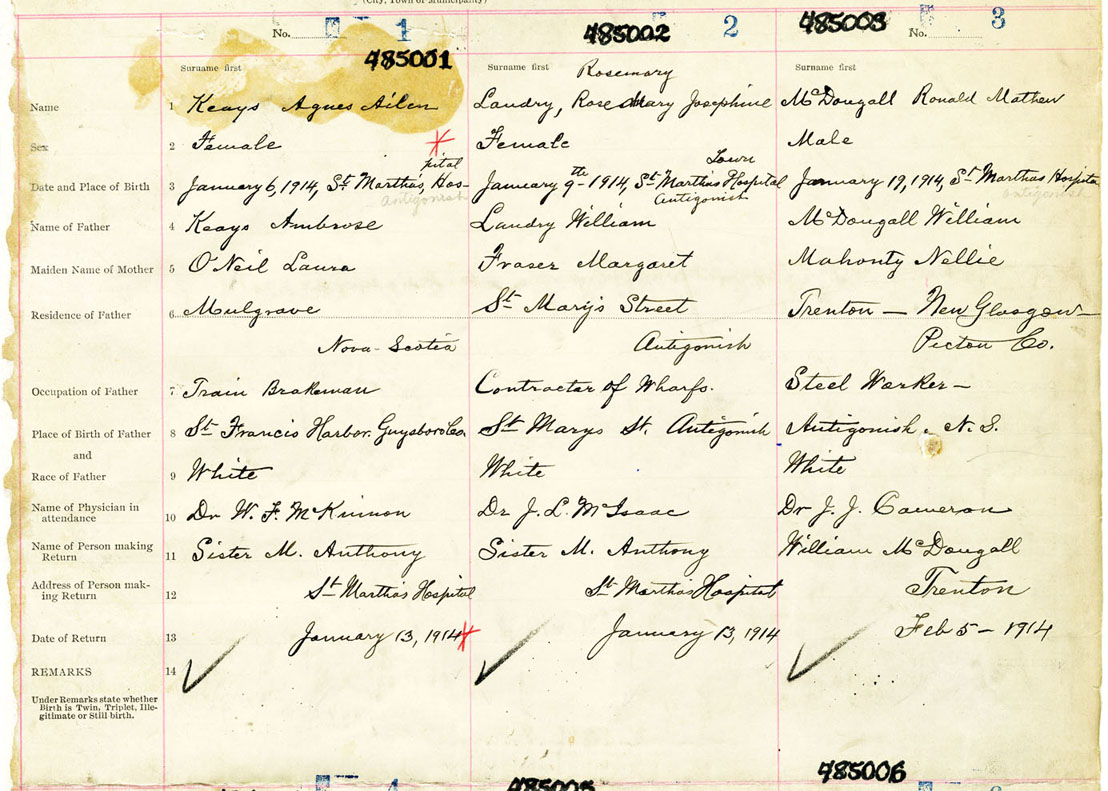 (City, Town or Municipality)
No. 1 485001
485002 2
485003 No. 3
Surname first Surname first Rosemary Surname first
Name 1 Keays Agnes Ailen Landry, Rose Mary Josephine McDougall Ronald Mathew
Sex 2 Female Female Male
pital Town
Date and Place of Birth 3 January 6, 1914, St Martha's, Hos- January 9th - 1914, St Marthas Hospital January 19, 1914, St Marthas Hospita
Antigonish Antigonish Antigonish
Name of Father 4 Keays Ambrose Landry William McDougall William
Maiden Name of Mother 5 O'Neil Laura Fraser Margaret Mahonty Nellie
Residence of Father 6 Mulgrave St Mary's Street Trenton — New Glasgow —
Nova-Scotia Antigonish Pictou Co.
Occupation of Father 7 Train Brakeman Contractor of Wharfs. Steel Worker —
Place of Birth of Father 8 St Francis Harbor. Guysboro Co. St Marys St. Antigonish Antigonish. N.S.
and
Race of Father 9 White White White
Name of Physician in
attendance 10 Dr W. F. McKinnon Dr J. L. McIsaac Dr J. J. Cameron
Name of Person making
Return 11 Sister M. Anthony Sister M. Anthony William McDougall
Address of Person mak-
ing Return 12 St Martha's Hospital St Martha's Hospital Trenton
Date of Return 13 January 13, 1914 January 13, 1914 Feb 5 - 1914
REMARKS 14
Under Remarks state whether
Birth is Twin, Triplet, Ille-
gitimate or Still birth.
4 485005 485006 6